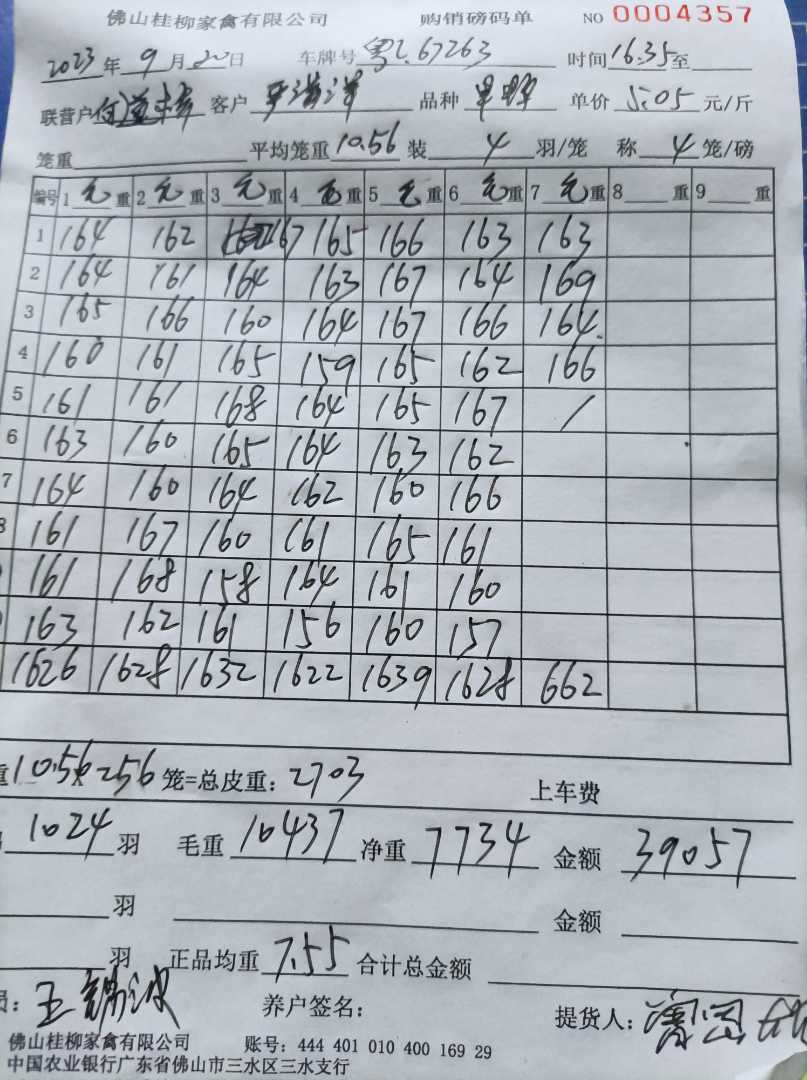 佛山桂柳家禽有限公司 购销磅码单 NO 0004357
2023年9月20日 车牌号 粤Z.67263 时间16.35至
联营户 客户 品种 单价 5.05 元/斤
笼重 平均笼重10.56 装 4 羽/笼 称 4 笼/磅
编号 1 重 2 重 3 重 4 重 5 重 6 重 7 重 8 重 9 重
1 164 162 167 165 166 163 163
2 164 161 164 163 167 164 169
3 165 166 160 164 167 166 164
4 160 161 165 159 165 162 166
5 161 161 168 164 165 167 /
6 163 160 165 164 163 162
7 164 160 164 162 160 166
8 161 167 160 161 165 161
161 168 158 164 161 160
163 162 161 156 160 157
1626 1628 1632 1622 1639 1628 662
重10.56 x 256 笼=总皮重：2703 上车费
1024 羽 毛重 10437 净重 7734 金额 39057
羽 金额
羽 正品均重 7.55 合计总金额
员： 养户签名： 提货人：
佛山桂柳家禽有限公司 账号：444 401 010 400 169 29
中国农业银行广东省佛山市三水区三水支行